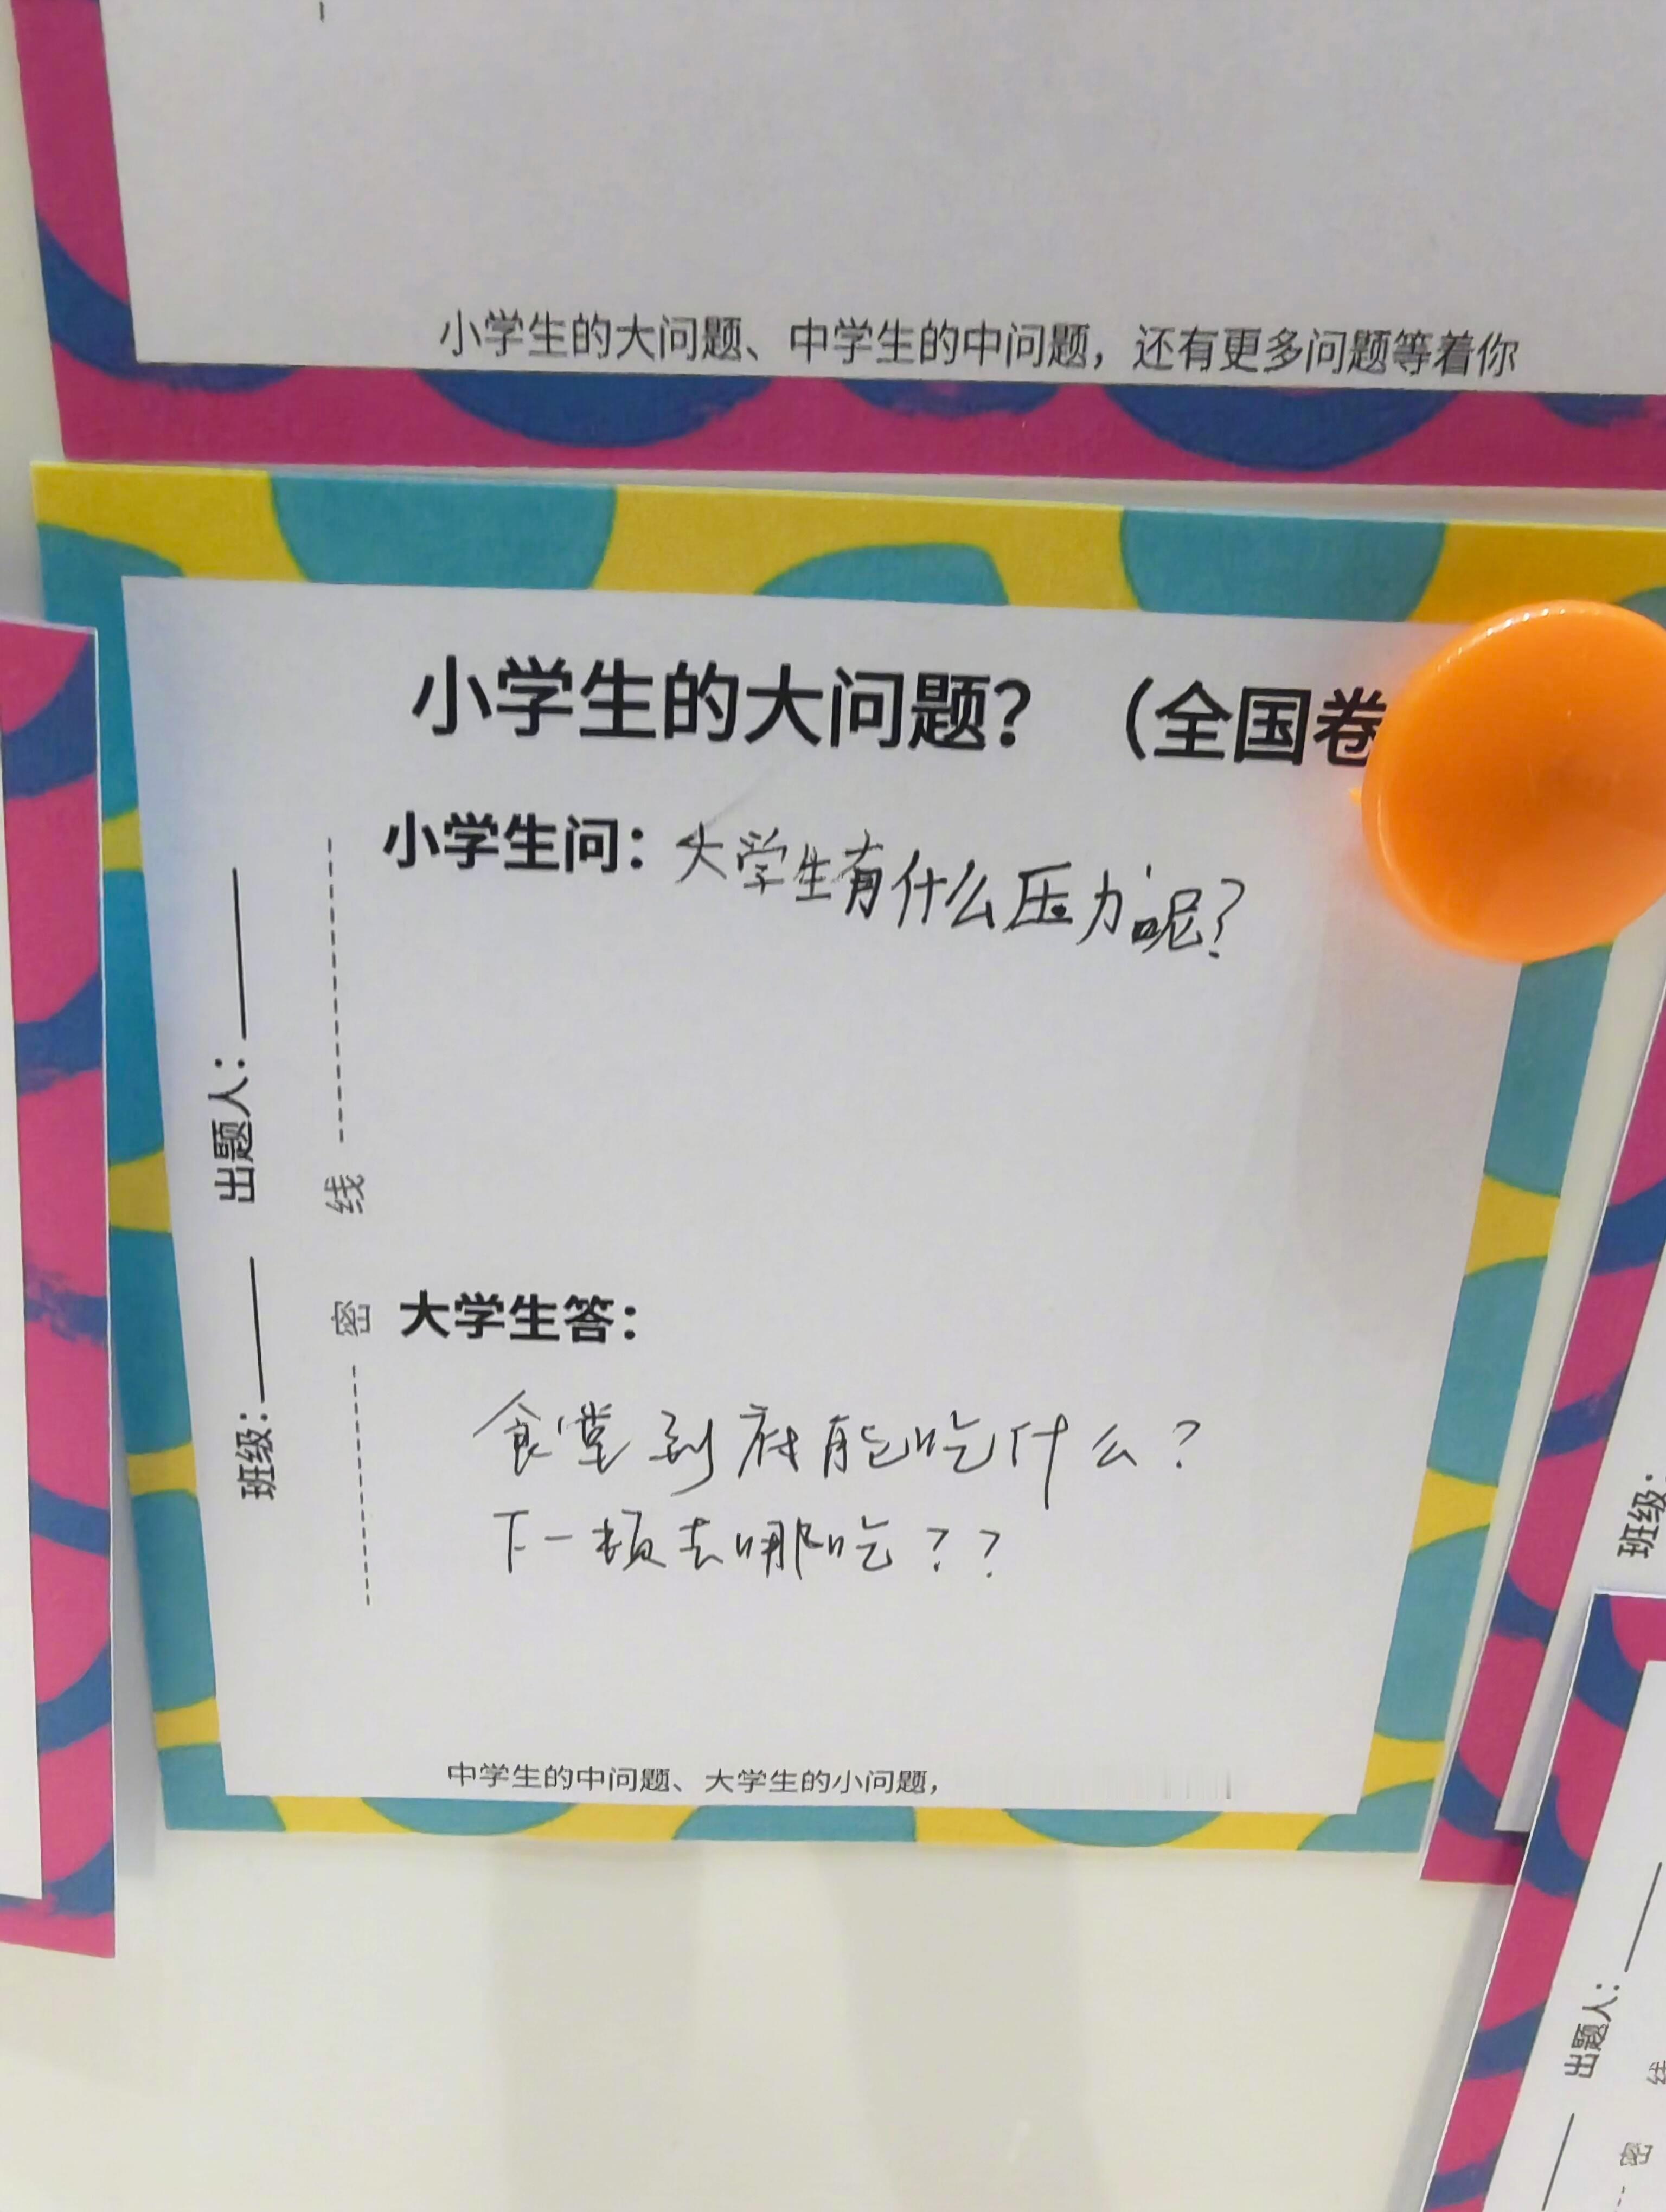 小学生的大问题、中学生的中问题，还有更多问题等着你
小学生的大问题？（全国卷
小学生问：大学生有什么压力呢？
大学生答：
食堂到底能吃什么？
下一顿去哪吃？？
中学生的中问题、大学生的小问题，
班级：
出题人：
密 线
班级：
出题人：
密 线